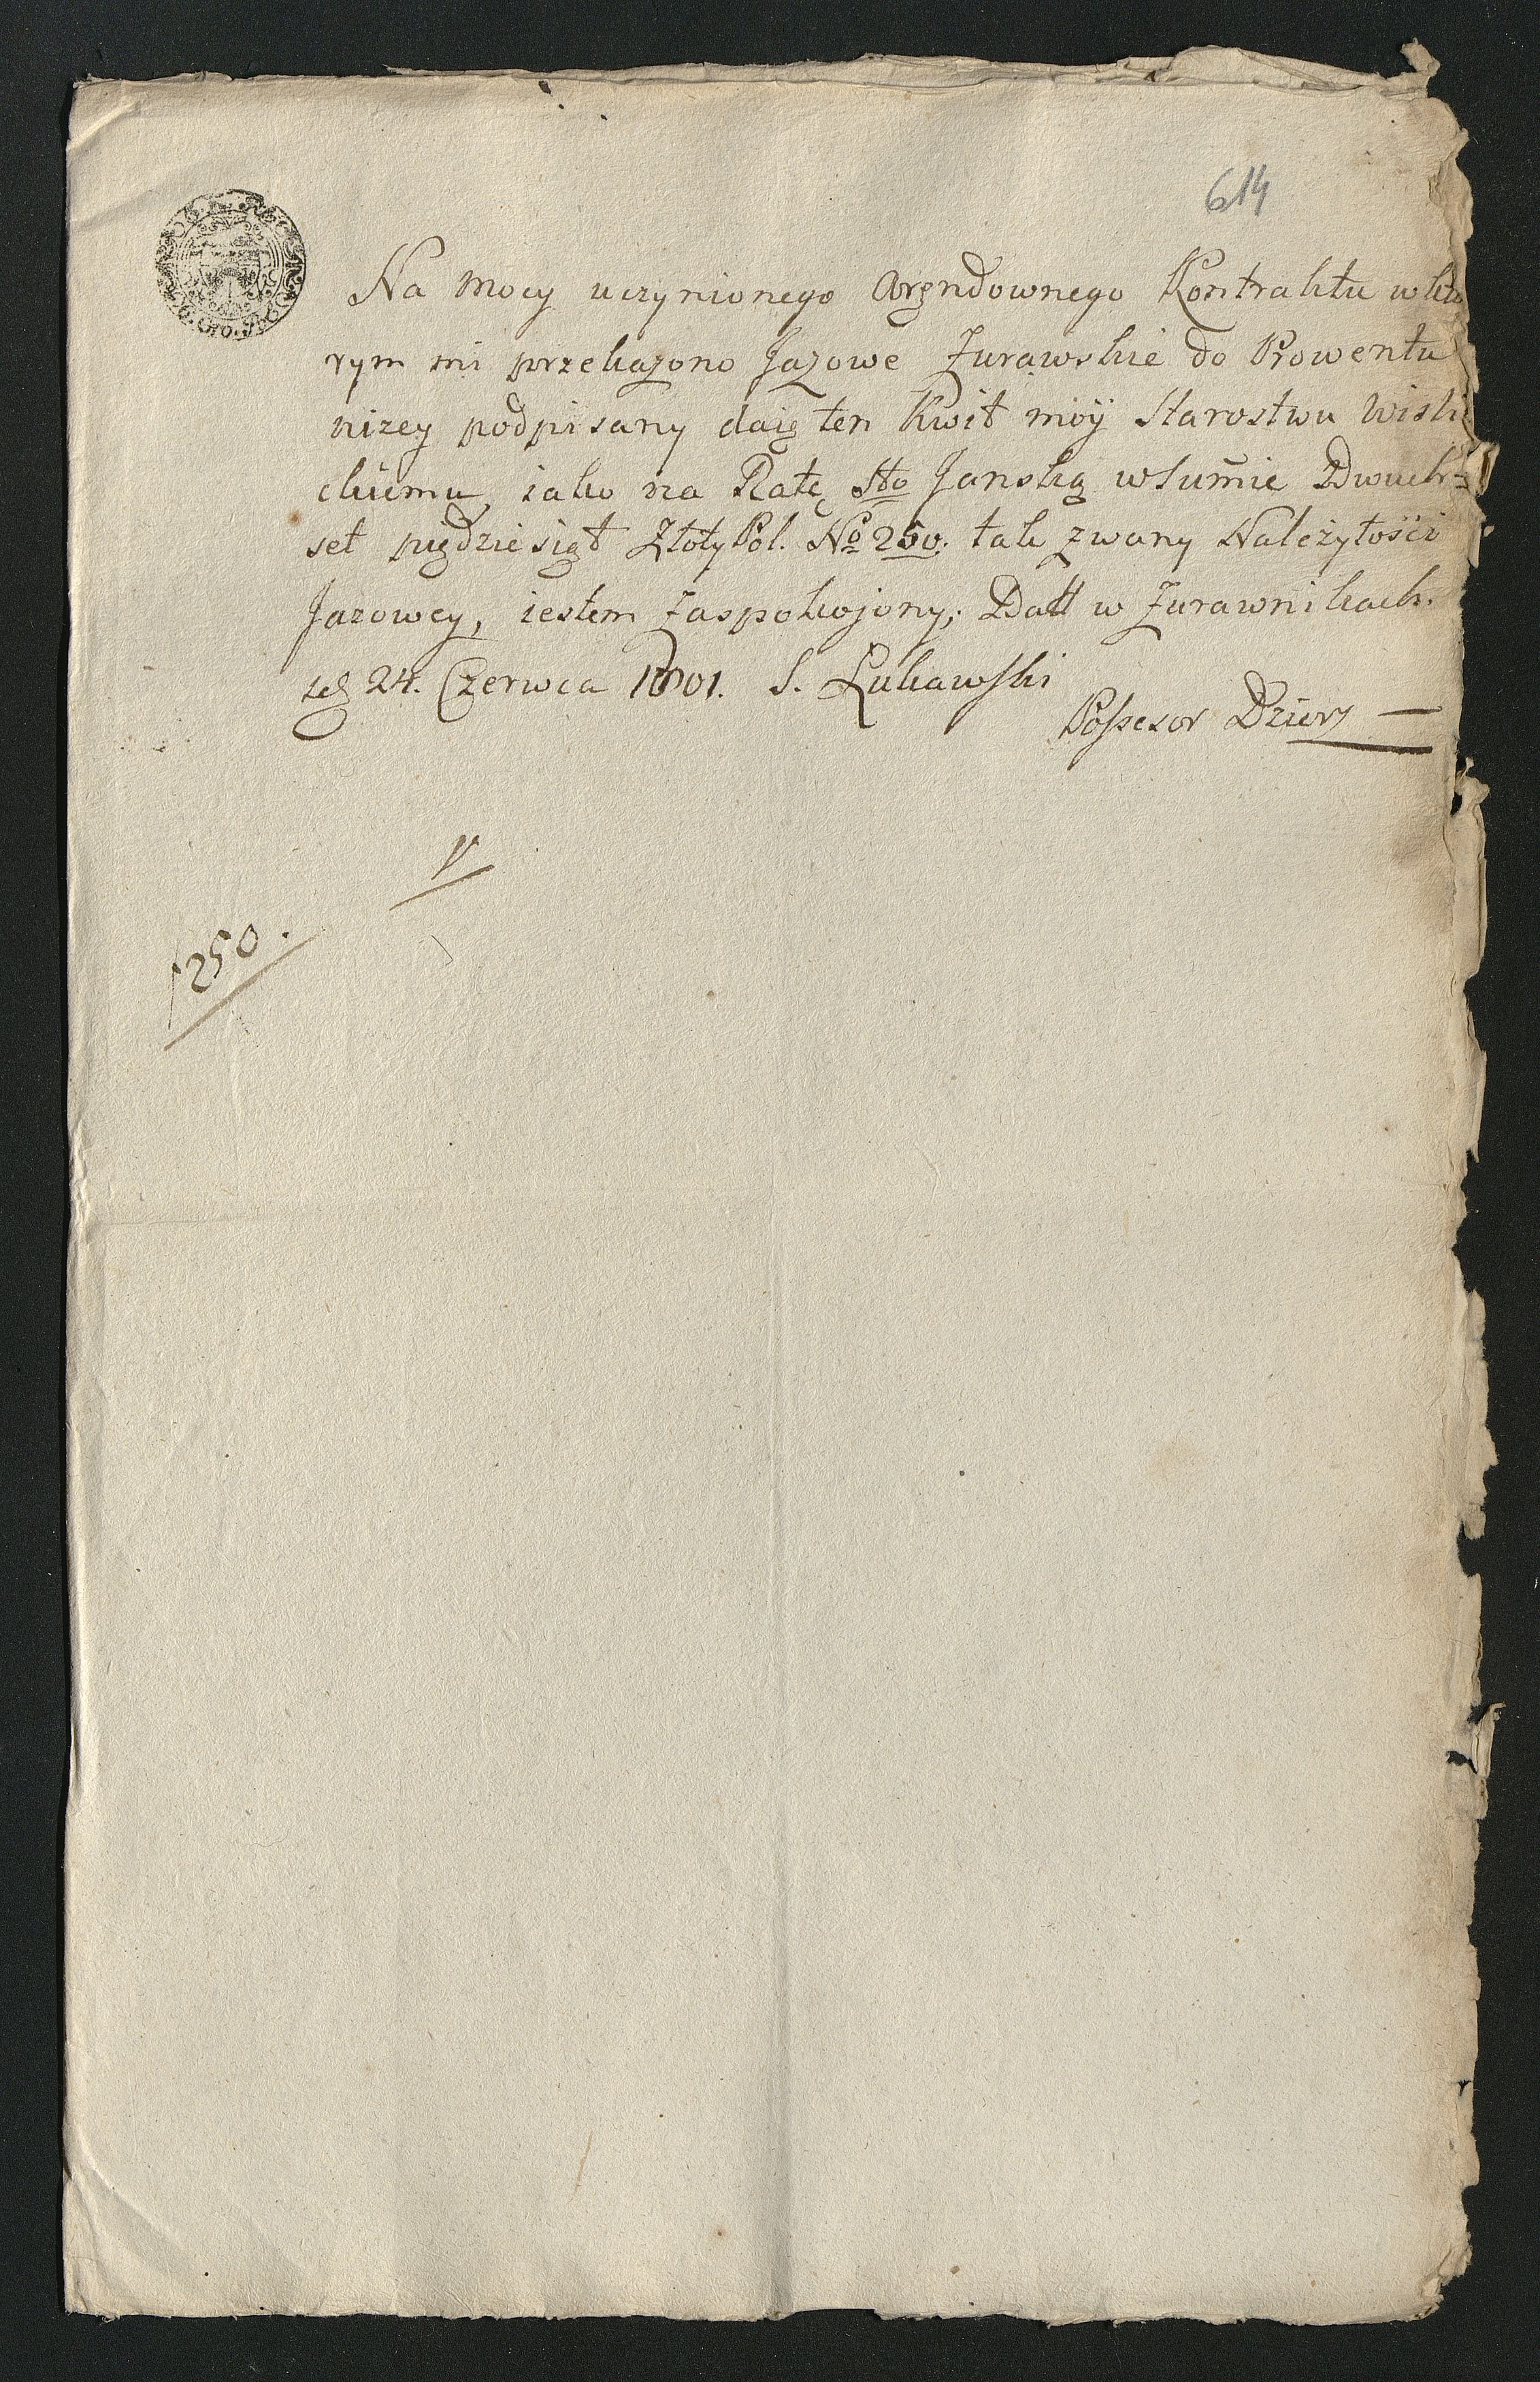 614
Na mocy uczynionego Arędownego Kontraktu w któ
rym mi przekazono Jazowe Żurawskie do Prowentu
niżey podpisany daię ten Kwit móy Starostwu Wisli
ckiemu, iako na Ratę Sto Janską w Sum̄ie Dwuch=
set piędziesiąt Złoty Pol. No 250. tak zwany Należytości
Jazowey, iestem zaspokojony; Datt w Żurawnikach.
24. Czerwca 1801. S. Łukawski
Possesor Dzierz —
250.